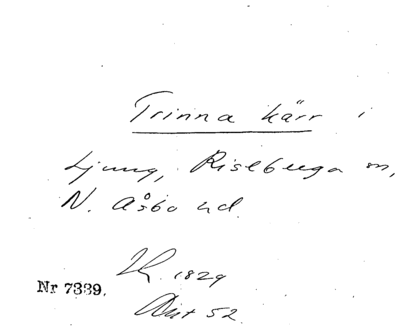 Trinna kärr i
Ljung, Riseberga sn,
N. Åsbo hd.
1829
Nr 7339.
Akt 52